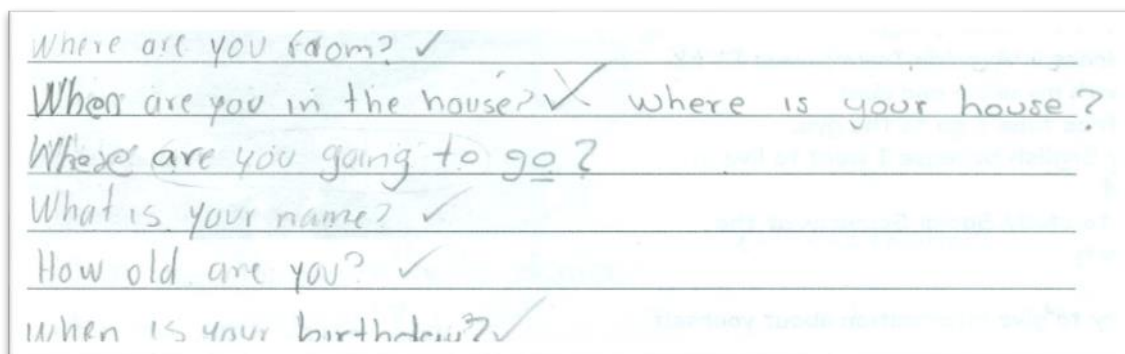 Where are you from? ✓
When are you in the house? ✓ where is your house?
Where are you going to go?
What is your name? ✓
How old are you? ✓
When is your birthday? ✓